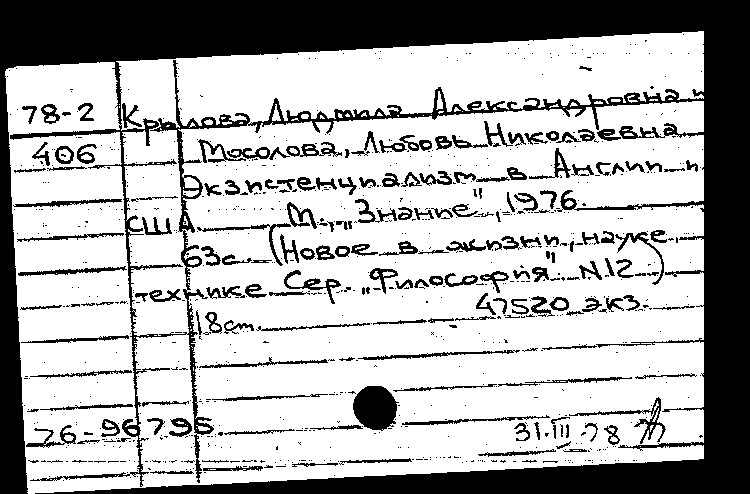 78-2 Крылова, Людмила Александровна и
406 Мосолова, Любовь Николаевна
Экзистенциализм в Англии и
США. М., „Знание", 1976.
63с. (Новое в жизни, науке,
технике Сер. „Философия" N12)
18см. 47520 экз.
76-96795. 31.III-78